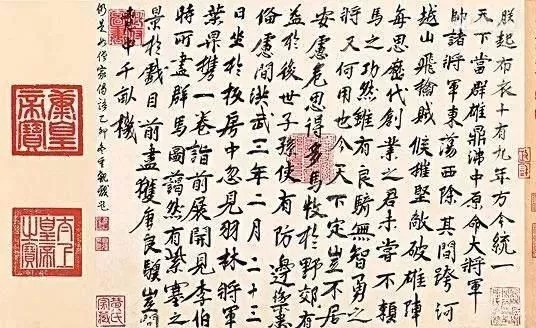 朕起布衣十有九年方今統一
天下當群雄鼎沸中原命大將軍
帥諸將軍東蕩西除其間跨河
越山飛擒賊候摧堅敵破雄陣
每思歷代創業之君未嘗不賴
馬之功然雖有良騎無智勇之
將又何用也今天下定豈不居
安慮危思得多馬牧於野郊有
益於後世子孫使有防邊禦患
俻慮間洪武三年二月二十三
日坐於板房中忽見羽林將軍
葉昇攜一卷詣前展開見李伯
時所畫群馬圖藹然有紫塞之
景於戲目前盡獲唐良驥豈問
中千畝機
乙卯冬重觀識
皇帝寶
太上皇帝之寶